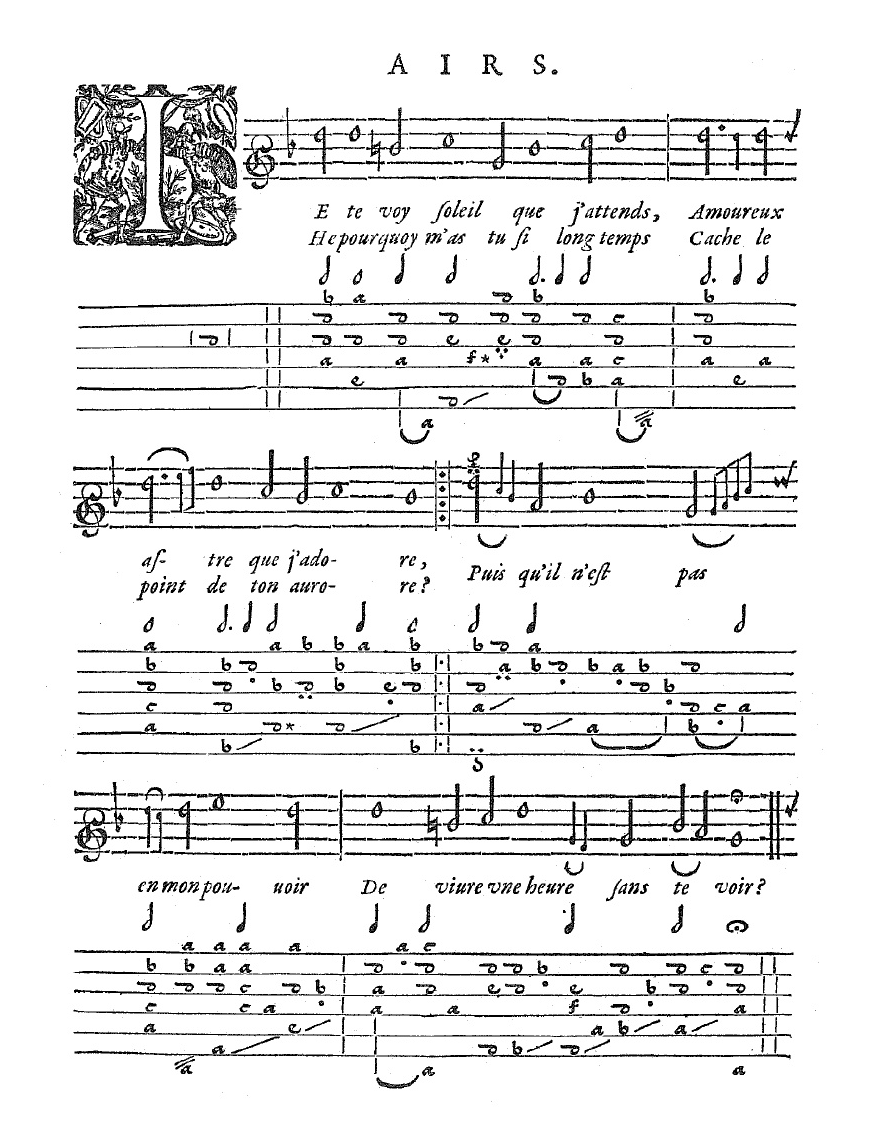 AIRS.
I
E te voy ſoleil que j'attends, Amoureux
He pourquoy m'as tu ſi long temps Cache le
aſ- tre que j'ado- re,
point de ton auro- re?
Puis qu'il n'eſt pas
en mon pou- uoir De viure vne heure ſans te voir?